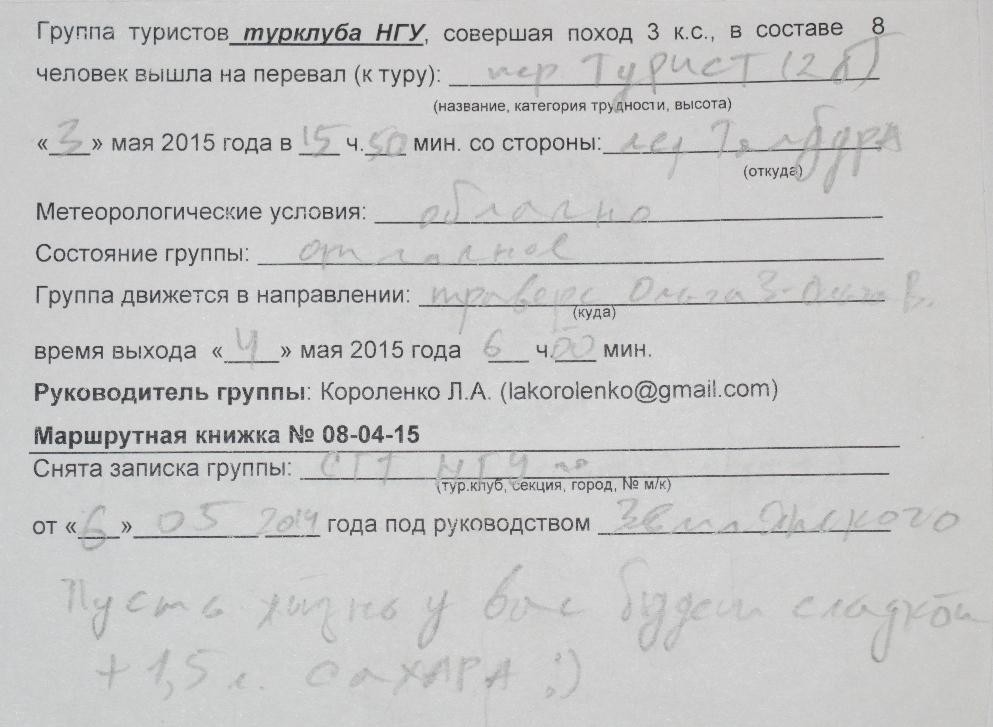 Группа туристов турклуба НГУ, совершая поход 3 к.с., в составе 8
человек вышла на перевал (к туру): пер Турист (2б)
(название, категория трудности, высота)
«3» мая 2015 года в 15 ч. 50 мин. со стороны: пер
(откуда)
Метеорологические условия: облачно
Состояние группы: отличное
Группа движется в направлении: траверс Ольга З - Ольга В.
(куда)
время выхода «4» мая 2015 года 6 ч. 00 мин.
Руководитель группы: Короленко Л.А. (lakorolenko@gmail.com)
Маршрутная книжка № 08-04-15
Снята записка группы: НГУ
(тур.клуб, секция, город, № м/к)
от «6» 05 2014 года под руководством Землянского
Пусть жизнь у вас будет сладкой
+ 1,5 л. сахара :)